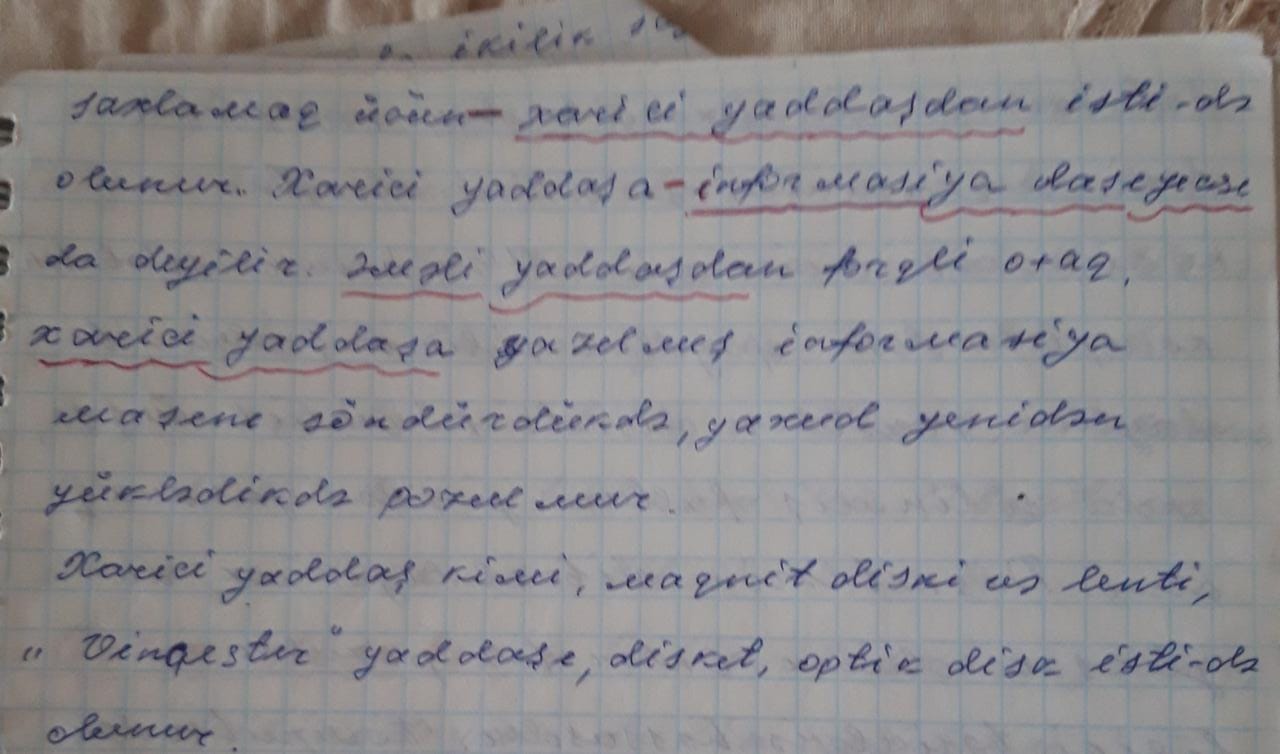 ikilik
saxlamaq üçün - xarici yaddaşdan isti-də
olunur. Xarici yaddaşa - informasiya daşıyıcısı
da deyilir. Əməli yaddaşdan fərqli olaq,
xarici yaddaşa yazılmış informasiya
maşını söndürdükdə, yaxud yenidən
yüklədikdə pozulmur.
Xarici yaddaş kimi, maqnit diski və lenti,
„Vinçester“ yaddaşı, disket, optik disk isti-də
olunur.